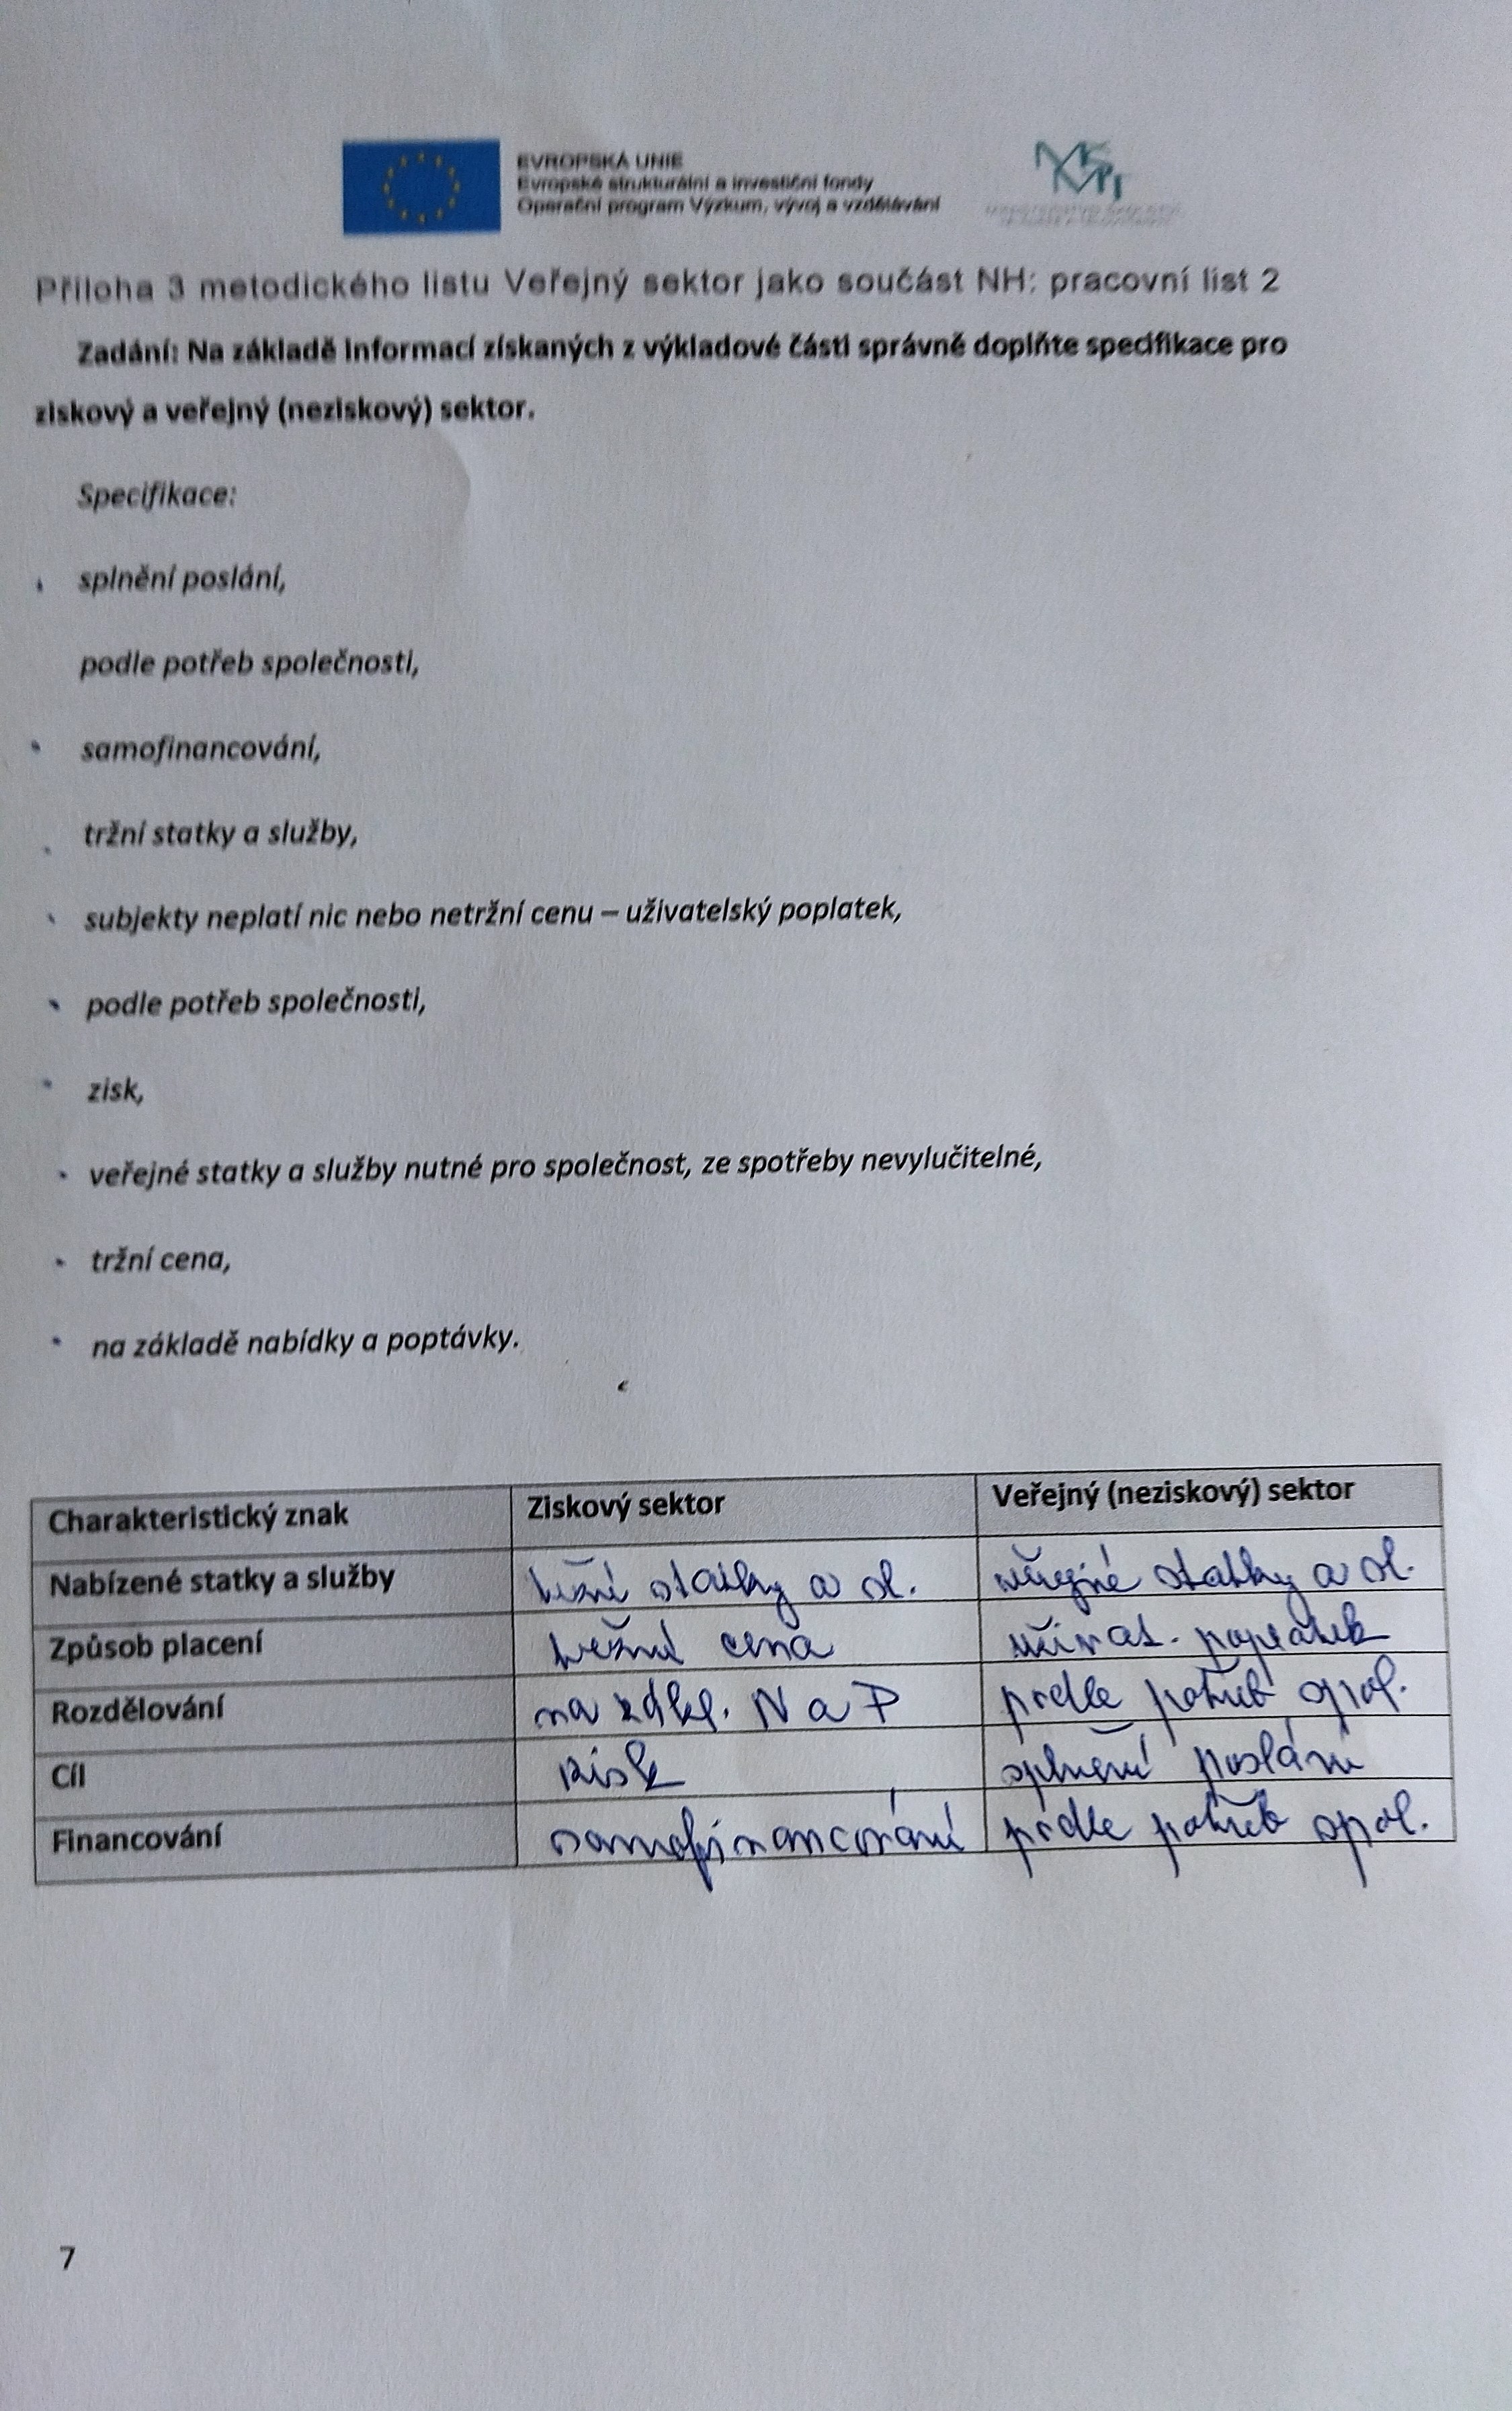 EVROPSKÁ UNIE
Evropské strukturální a investiční fondy
Operační program Výzkum, vývoj a vzdělávání
Příloha 3 metodického listu Veřejný sektor jako součást NH: pracovní list 2
Zadání: Na základě informací získaných z výkladové části správně doplňte specifikace pro
ziskový a veřejný (neziskový) sektor.
Specifikace:
splnění poslání,
podle potřeb společnosti,
samofinancování,
tržní statky a služby,
subjekty neplatí nic nebo netržní cenu – uživatelský poplatek,
podle potřeb společnosti,
zisk,
veřejné statky a služby nutné pro společnost, ze spotřeby nevylučitelné,
tržní cena,
na základě nabídky a poptávky.
Charakteristický znak Ziskový sektor Veřejný (neziskový) sektor
Nabízené statky a služby tržní statky a sl. veřejné statky a sl.
Způsob placení tržní cena uživat. poplatek
Rozdělování na zákl. N a P podle potřeb spol.
Cíl zisk splnění poslání
Financování samofinancování podle potřeb spol.
7